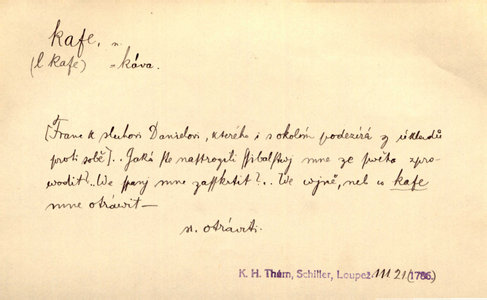 kafe, n.
(l kafe) = káva.
[Franc k sluhovi Danielovi, kterého i s okolím podezírá z úkladů
proti sobě].. Jaká ste nastrogili ssibalstwj mne ze swěta zpro-
wodit?.. We spanj mne zasskrtit?.. We wjně, neb w kafe
mne otráwit —
n. otráviti.
K. H. Thám, Schiller, Loupež. III 21 (1786.)